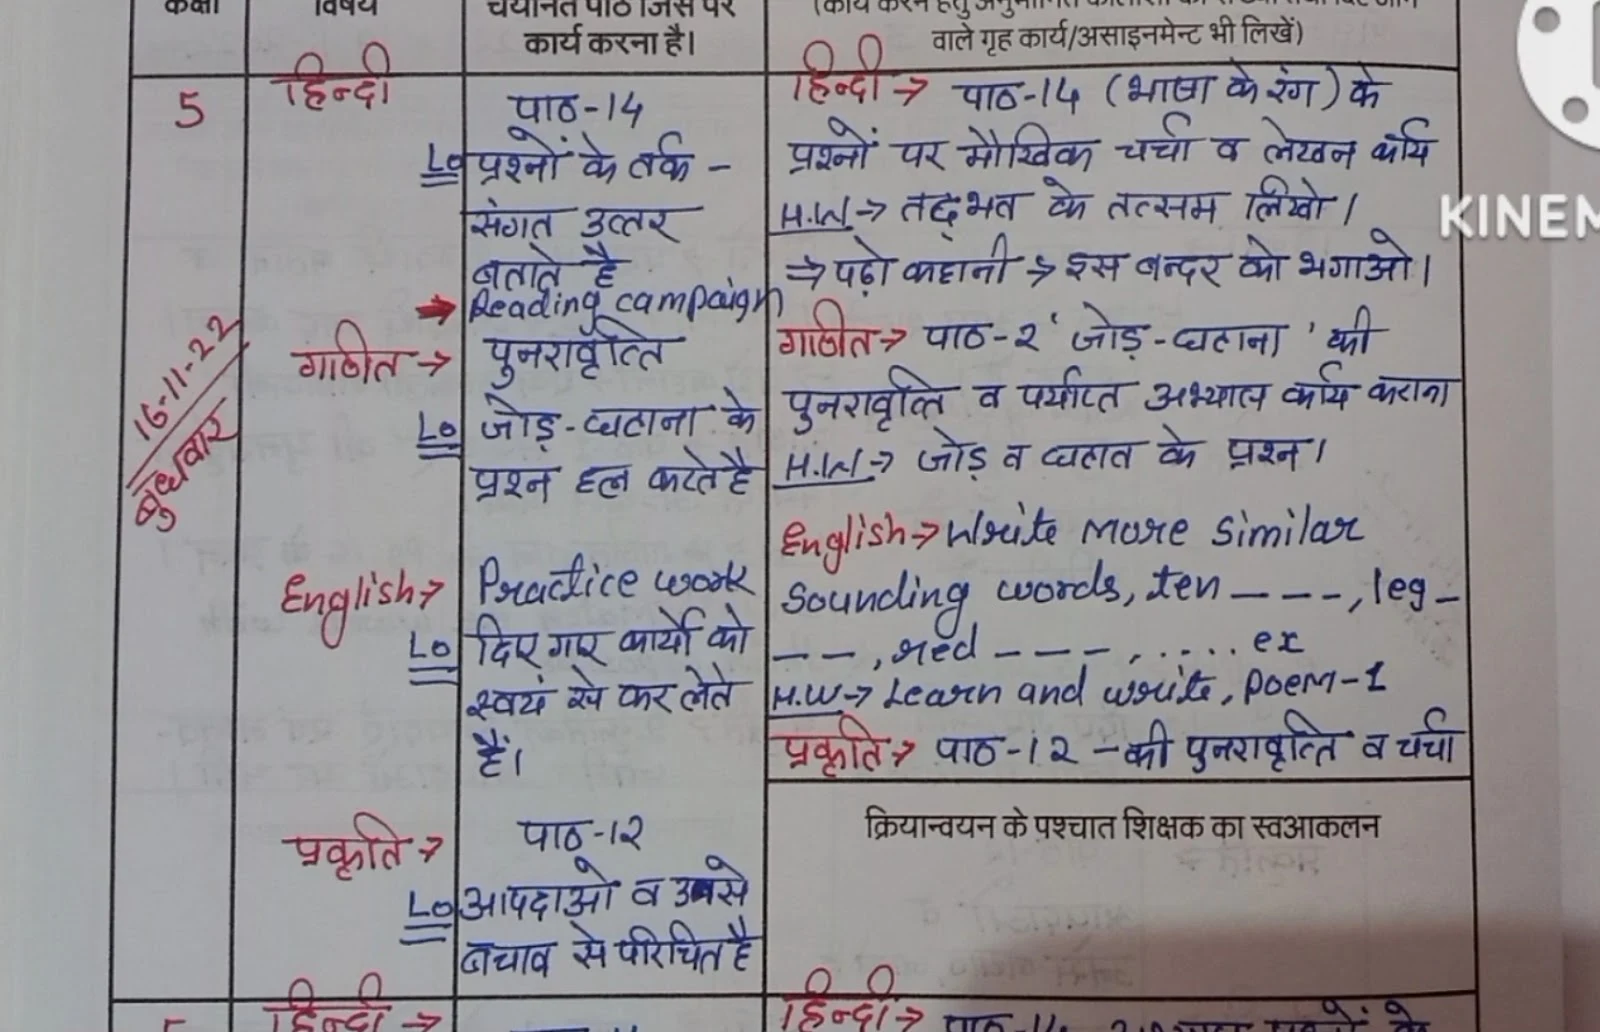 कक्षा
विषय
चयनित पाठ जिस पर
कार्य करना है।
वाले गृह कार्य/असाइनमेन्ट भी लिखें)
16-11-22
बुधवार
5
हिन्दी
पाठ-14
Lo प्रश्नों के तर्क -
संगत उत्तर
बताते है
→ Reading campaign
गणित →
पुनरावृत्ति
Lo जोड़-घटाना के
प्रश्न हल करते है
English →
Practice work
Lo दिए गए कार्यो को
स्वयं से कर लेते
हैं।
प्रकृति →
पाठ-12
Lo आपदाओ व उनसे
बचाव से परिचित है
हिन्दी → पाठ-14 (भाषा के रंग) के
प्रश्नों पर मौखिक चर्चा व लेखन कार्य
H.W → तद्भव के तत्सम लिखो।
⇒ पढ़ो कहानी → इस बन्दर को भगाओ।
गणित → पाठ-2 'जोड़-घटाना' की
पुनरावृत्ति व पर्याप्त अभ्यास कार्य कराना
H.W → जोड़ व घटाव के प्रश्न।
English → Write more similar
sounding words, ten ----, leg -
--, red ----, ..... ex
H.W → Learn and write, Poem-1
प्रकृति → पाठ-12 - की पुनरावृत्ति व चर्चा
क्रियान्वयन के पश्चात शिक्षक का स्वआकलन
हिन्दी →
हिन्दी →
KINEM